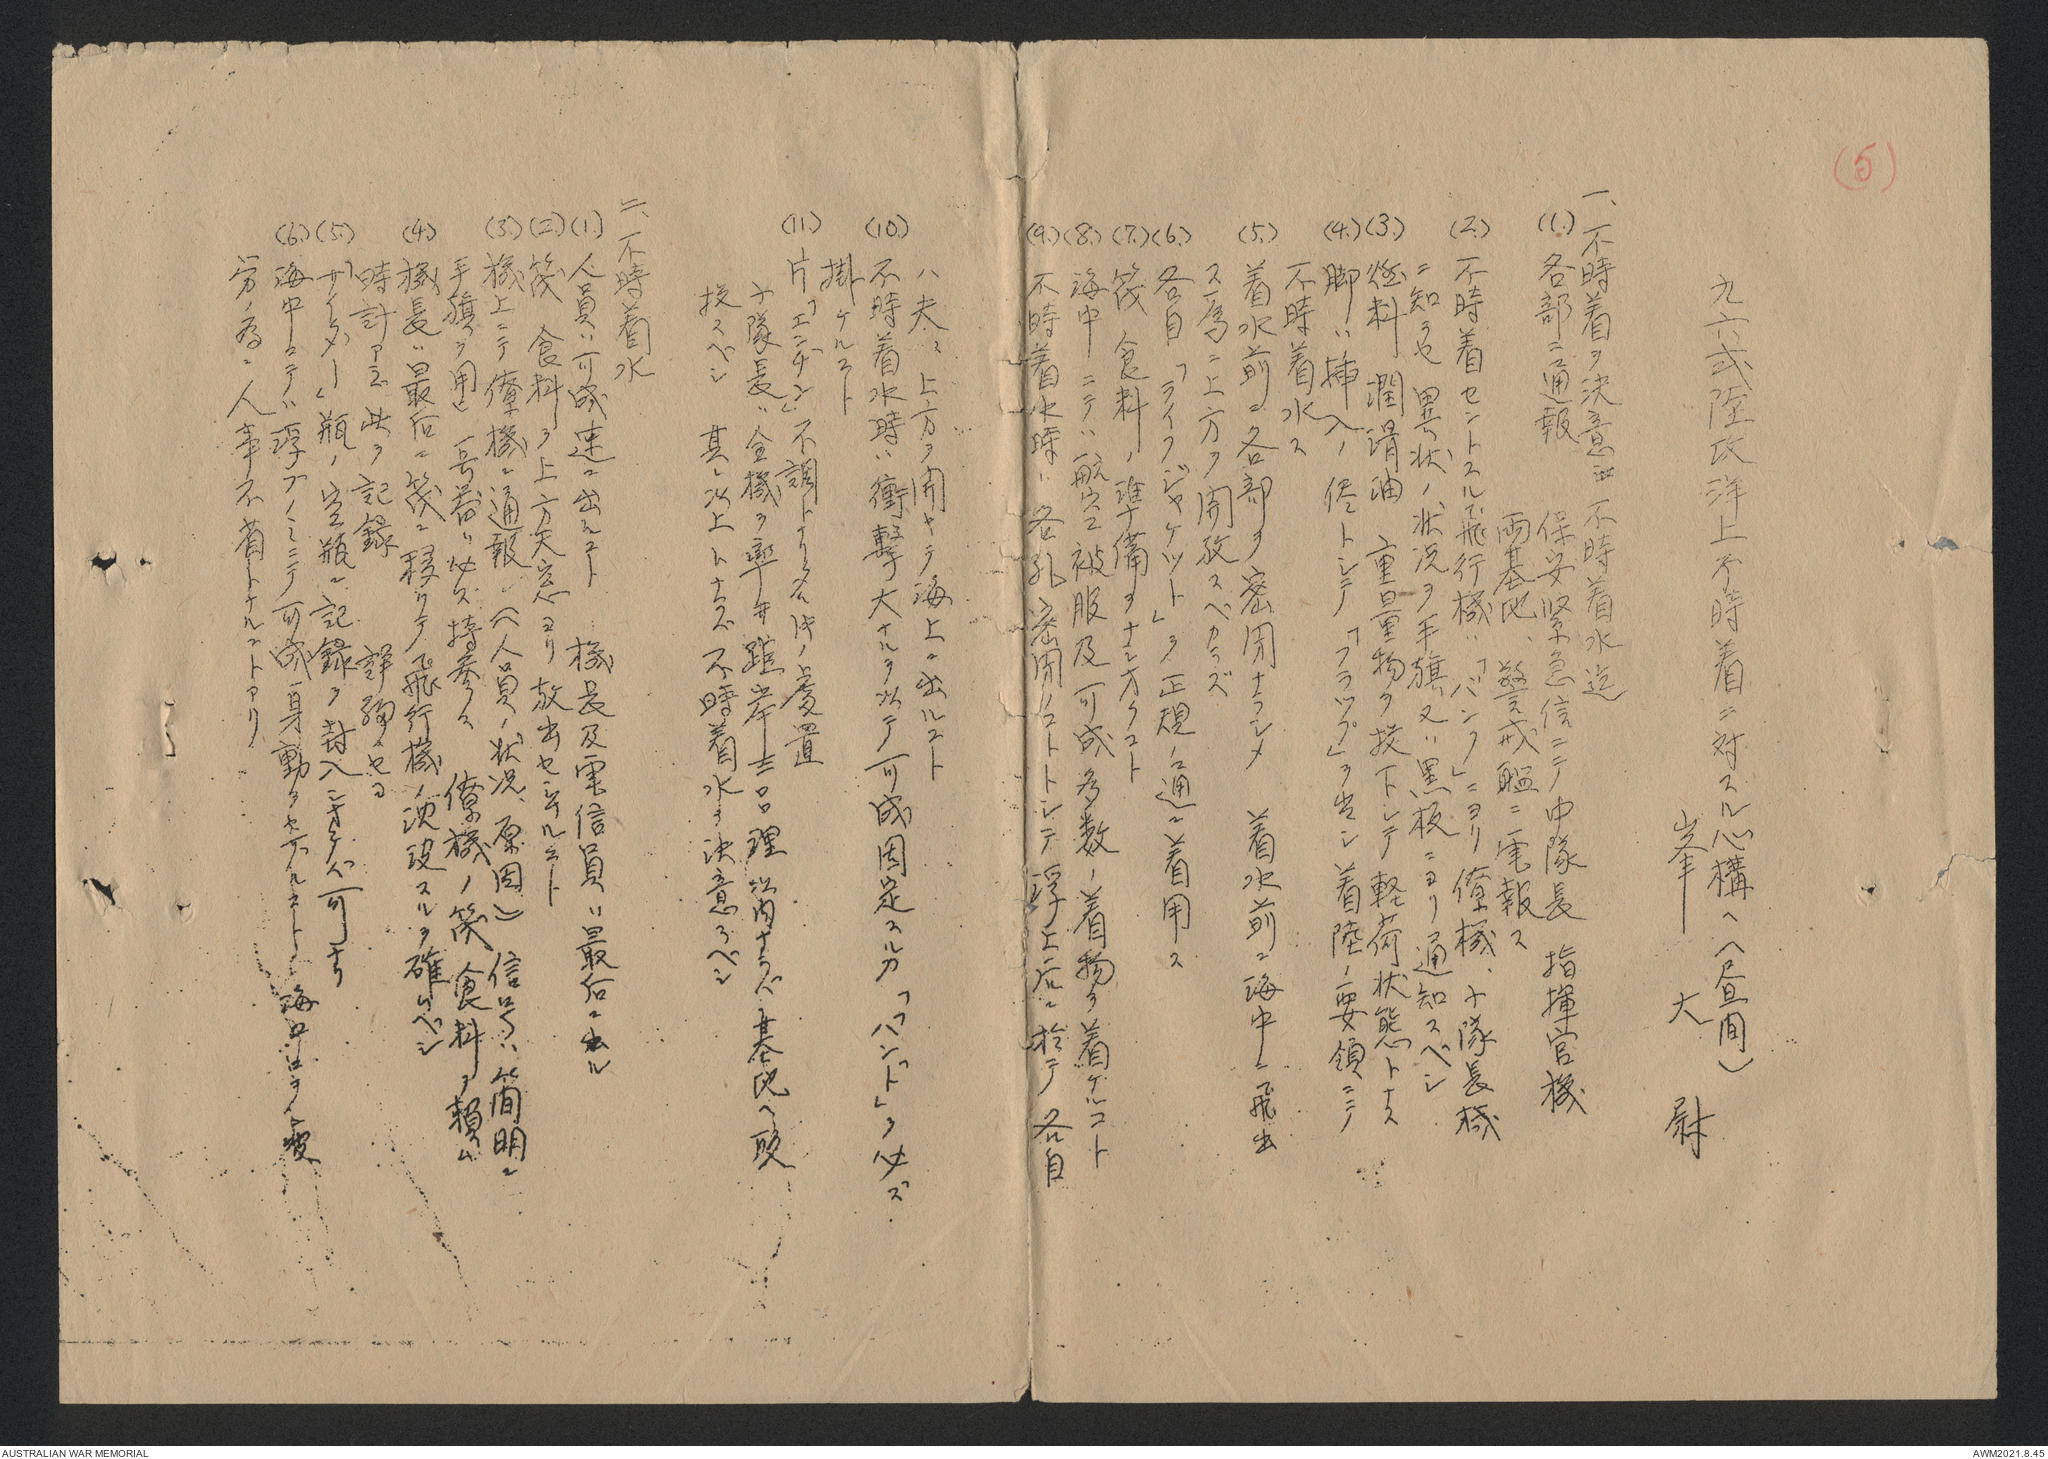 (5)
九六式陸攻洋上不時着ニ対スル心構ヘ(昼间)
峯 大 尉
一、不時着ヲ決意 不時着水迄
(1.) 各部ニ通報 保安緊急信ニテ中隊長 指揮官機
両基地、警戒艦ニ電報ス
(2.) 不時着セントスル飛行機ハ「バンク」ニヨリ僚機、小隊長機
ニ知ラセ 異状ノ状況ヲ手旗又ハ黒板ニヨリ通知スベシ
(3.) 燃料 潤滑油 重量物ヲ投下シテ軽荷状態トナス
(4.) 脚ハ挿入ノ侭トシテ「フラップ」ヲ出シ着陸ノ要領ニテ
不時着水ス
(5.) 着水前ニ各部ヲ密閉ナラシメ 着水前ニ海中ニ飛出
ス為ニ上方ヲ開放スベカラズ
(6.) 各自「ライフジャケット」ヲ正規ノ通ニ着用ス
(7.) 筏 食料ノ準備ヲナシオクコト
(8.) 海中ニテハ航空被服及可成多数ノ着物ヲ着ケルコト
(9.) 不時着水時ハ各孔密閉ノコトトシテ浮上后ニ於テ各自
ハ夫々上方ヲ開キテ海上ニ出ルコト
(10.) 不時着水時ハ衝撃大ナルヲ以テ可成固定スルカ「バンド」ヲ必ズ
掛ケルコト
(11.) 片「エンヂン」不調トナリタル時ノ処置
小隊長ハ全機ヲ率ヰ 距岸 三〇浬以内ナラバ基地ヘ取
投スベシ 其レ以上トナラバ不時着水ヲ決意スベシ
二、不時着水
(1.) 人員ハ可成速ニ出ルコト 機長及電信員ハ最后ニ出ル
(2.) 筏 食料ヲ上方天窓ヨリ放出セシムルコト
(3.) 機上ニテ僚機ニ通報(人員ノ状況、原因) 信号ハ簡明ニ
手旗ヲ用ヒ 一号器ハ必ズ持参ス 僚機ノ筏 食料ヲ頼ム
(4.) 機長ハ最后ニ筏ニ移リテ飛行機ノ沈没スルヲ確ムベシ
時計アラバ此ヲ記録
(5.) 「サイダー」瓶ノ空瓶ニ記録ヲ封入シオケバ可ナリ
(6.) 海中ニテハ浮ブノミニテ可成身動ヲセザルコト 海中ニテハ疲
労ノ為ニ人事不省トナルコトアリ